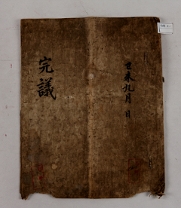 未九月 日
完議